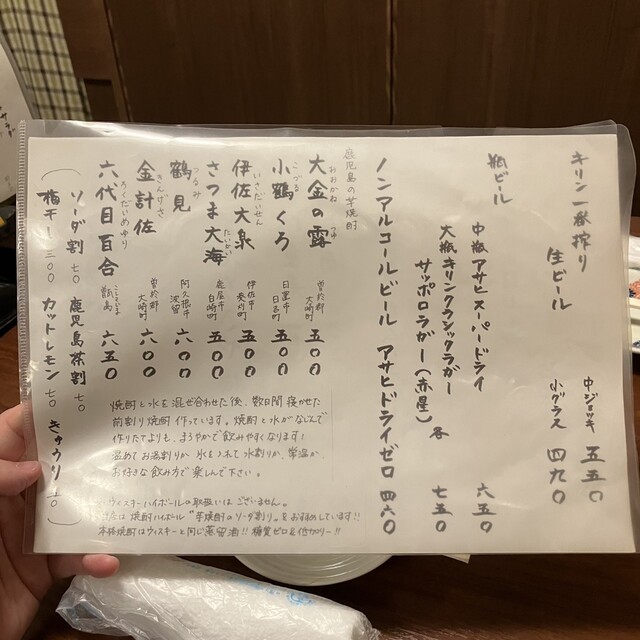 キリン一番搾り
生ビール
中ジョッキ 五五〇
小グラス 四九〇
瓶ビール
中瓶 アサヒスーパードライ 六五〇
大瓶 キリンクラシックラガー
サッポロラガー(赤星) 各 七五〇
ノンアルコールビール アサヒドライゼロ 四六〇
鹿児島の芋焼酎
大金の露 おおがねのつゆ 曽於郡 大崎町 五五〇
小鶴くろ こづる 日置市 日吉町 五〇〇
伊佐大泉 いさだいせん 伊佐市 菱刈町 五〇〇
さつま大海 たいかい 鹿屋市 白崎町 五〇〇
鶴見 つるみ 阿久根市 波留 六〇〇
金計佐 きんけいさ 曽於郡 大崎町 六〇〇
六代目百合 ろくだいめゆり 甑島 こしきしま 六五〇
ソーダ割 七〇 鹿児島茶割 七〇
梅干一 三〇〇 カットレモン 七〇 きゅうり 五〇
焼酎と水を混ぜ合わせた後、数日間寝かせた
前割り焼酎作っています。焼酎と水がなじんで
作りたてよりも、まろやかで飲みやすくなります!
温めてお湯割りか 氷を入れて水割りか、常温か、
お好きな飲み方で楽しんで下さい。
ウィスキーハイボールの取扱いはございません。
当店は焼酎ハイボール"芋焼酎のソーダ割り"をおすすめしています!!
本格焼酎はウィスキーと同じ蒸留酒!! 糖質ゼロ&低カロリー!!